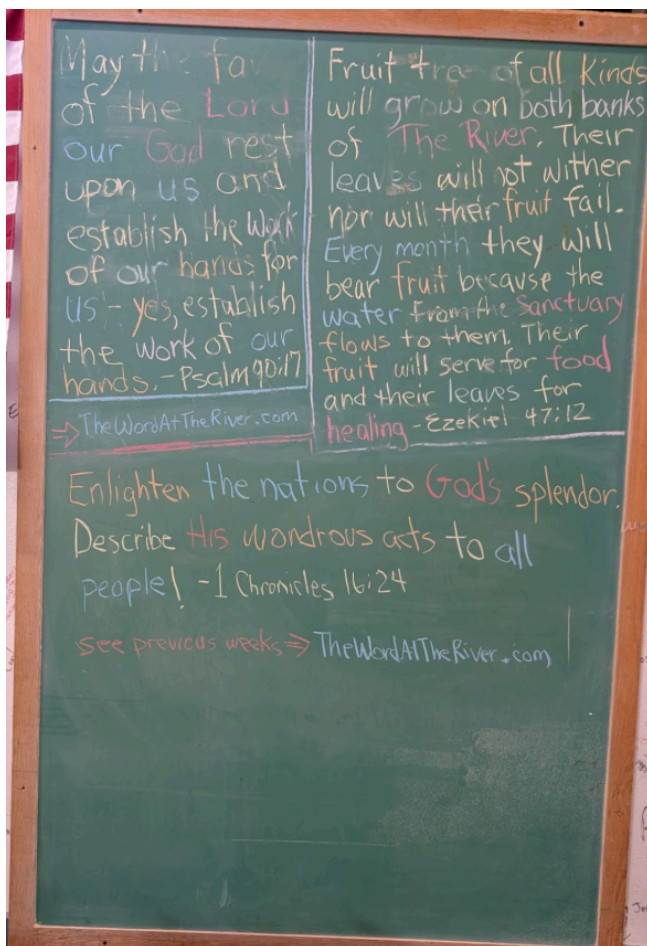 May the fa
of the Lord
our God rest
upon us and
establish the work
of our hands for
us - yes, establish
the work of our
hands. - Psalm 90:17
⇒ TheWordAtTheRiver.com
Fruit tree of all Kinds
will grow on both banks
of The River. Their
leaves will not wither
nor will their fruit fail.
Every month they will
bear fruit because the
water from the Sanctuary
flows to them. Their
fruit will serve for food
and their leaves for
healing - Ezekiel 47:12
Enlighten the nations to God's splendor.
Describe His wondrous acts to all
people! - 1 Chronicles 16:24
See previous weeks ⇒ TheWordAtTheRiver.com